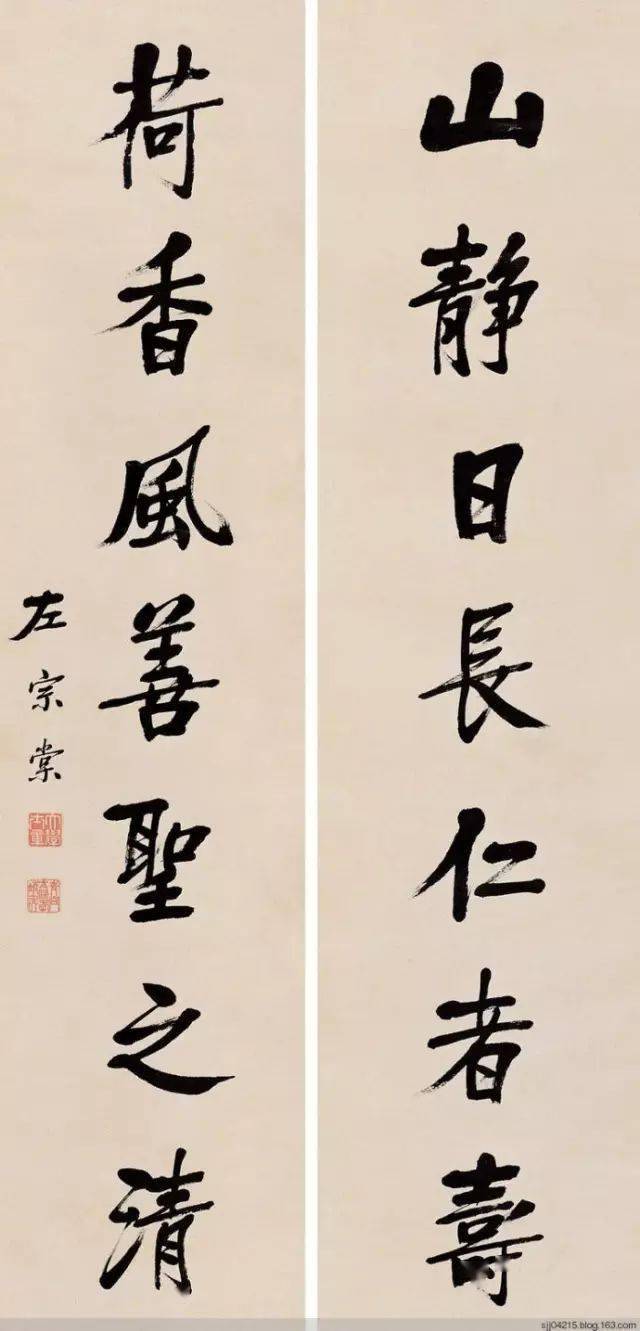 山静日長仁者壽
荷香風善聖之清
左宗棠
sjj04215.blog.163.com